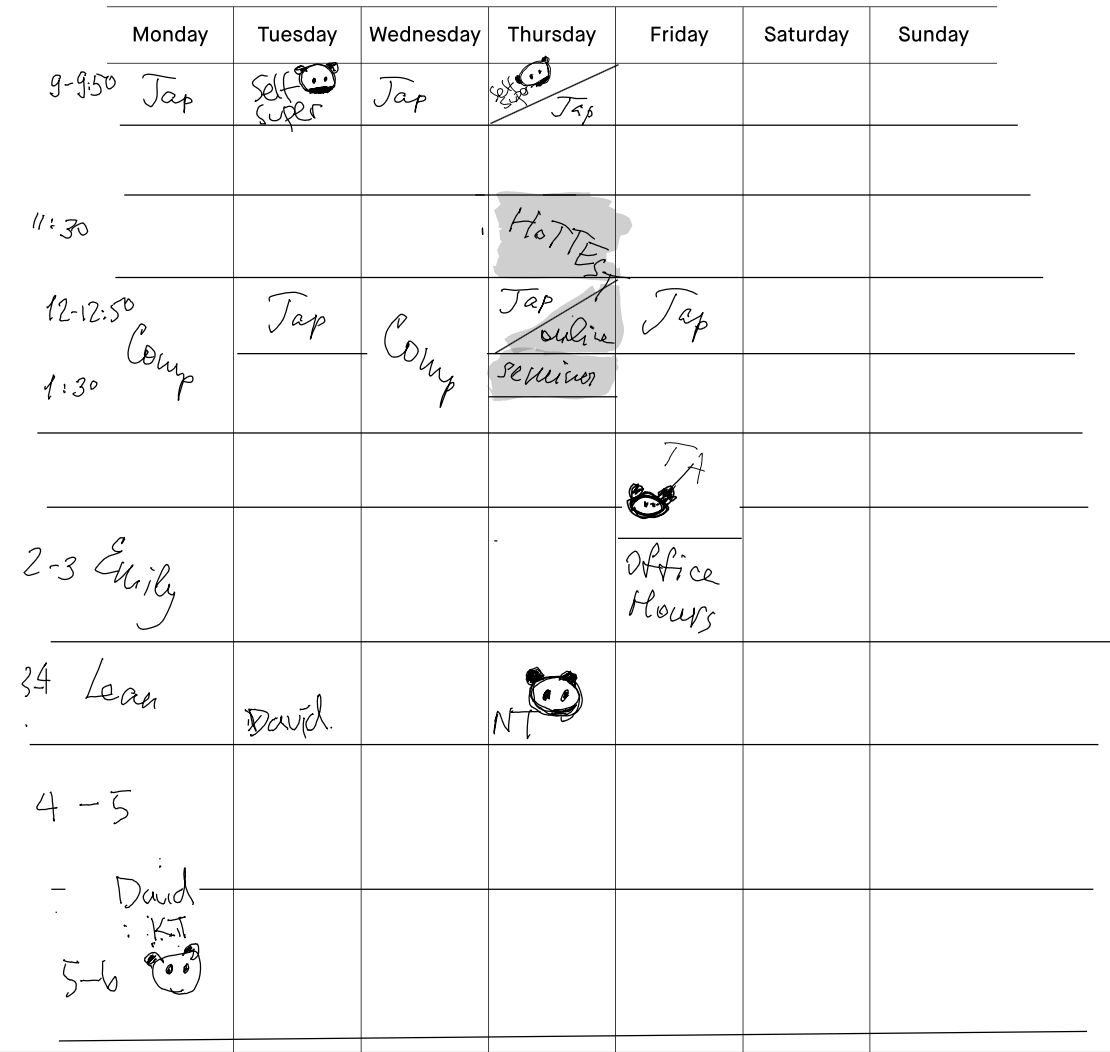 Monday Tuesday Wednesday Thursday Friday Saturday Sunday
9-9:50 Jap Self Jap Self
super super Jap
11:30 HoTTEST
12-12:50 Jap Jap Jap
Comp Comp online
1:30 seminar
TA
2-3 Emily Office
Hours
34 Lean David. NT
4-5
David
KT
5-6